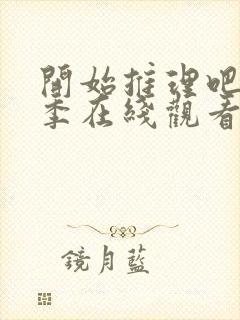 開始推理吧
季在綫觀看
鏡月藍